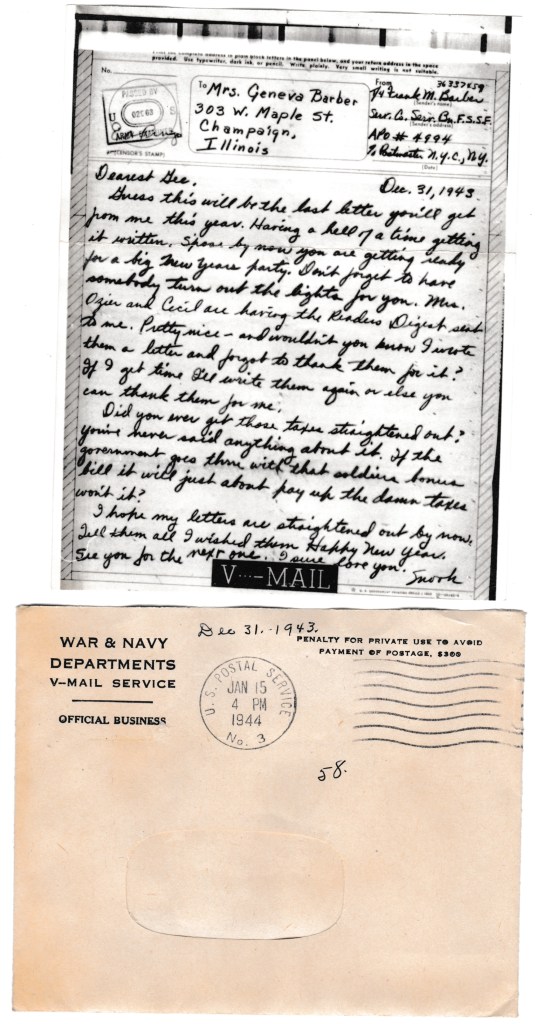 Print the complete address in plain block letters in the panel below, and your return address in the space
provided. Use typewriter, dark ink, or pencil. Write plainly. Very small writing is not suitable.
No.
PASSED BY
U S
(CENSOR'S STAMP)
To Mrs. Geneva Barber
303 W. Maple St.
Champaign,
Illinois
From
36337659
T/4 Frank M. Barber
(Sender's name)
Serv. Co. Serv. Bn. F.S.S.F.
(Sender's address)
APO # 4994
% Postmaster N.Y.C., N.Y.
(Date)
Dec. 31, 1943
Dearest Gee,
Guess this will be the last letter you'll get
from me this year. Having a hell of a time getting
it written. Spose by now you are getting ready
for a big New Years party. Don't forget to have
somebody turn out the lights for you. Mrs.
Ozier and Cecil are having the Readers Digest sent
to me. Pretty nice - and wouldn't you know I wrote
them a letter and forgot to thank them for it?
If I get time I'll write them again or else you
can thank them for me.
Did you ever get those taxes straightened out?
You've never said anything about it. If the
government goes thru with that soldiers bonus
bill it will just about pay up the damn taxes
won't it?
I hope my letters are straightened out by now.
Tell them all I wished them Happy New Year.
See you for the next one. I sure love you.
Snork
V···—MAIL
Dec 31.-1943.
WAR & NAVY
DEPARTMENTS
V-MAIL SERVICE
OFFICIAL BUSINESS
PENALTY FOR PRIVATE USE TO AVOID
PAYMENT OF POSTAGE, $300
U.S. POSTAL SERVICE
JAN 15
4 PM
1944
No. 3
58.